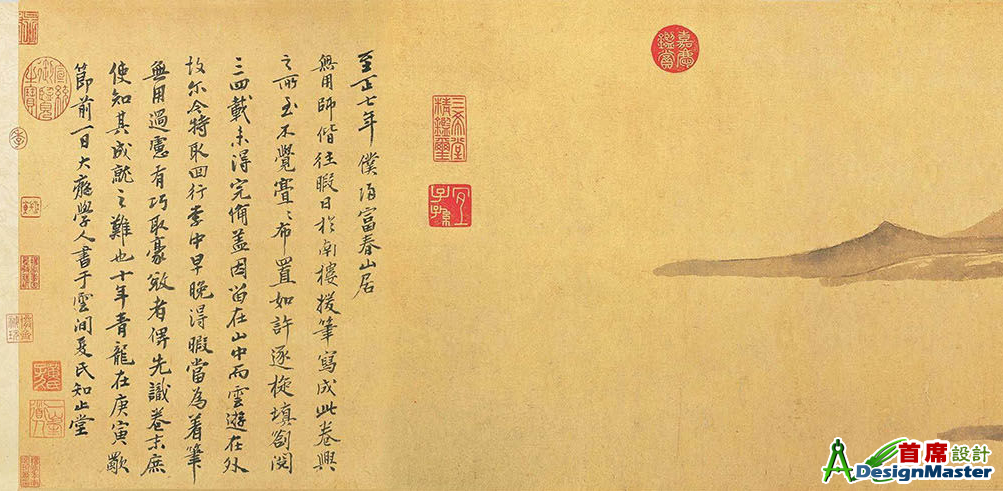 嘉慶鑑賞
三希堂精鑑璽
宜子孫
至正七年僕歸富春山居
無用師偕往暇日於南樓援筆寫成此卷興
之所至不覺亹〻布置如許逐旋填劄閱
三四載未得完備盖因留在山中而雲遊在外
故尔今特取回行李中早晚得暇當為着筆
無用過慮有巧取豪敚者俾先識卷末庶
使知其成就之難也十年青龍在庚寅歜
節前一日大癡學人書于雲間夏氏知止堂
宣統御覽之寶
首席設計
DesignMaster